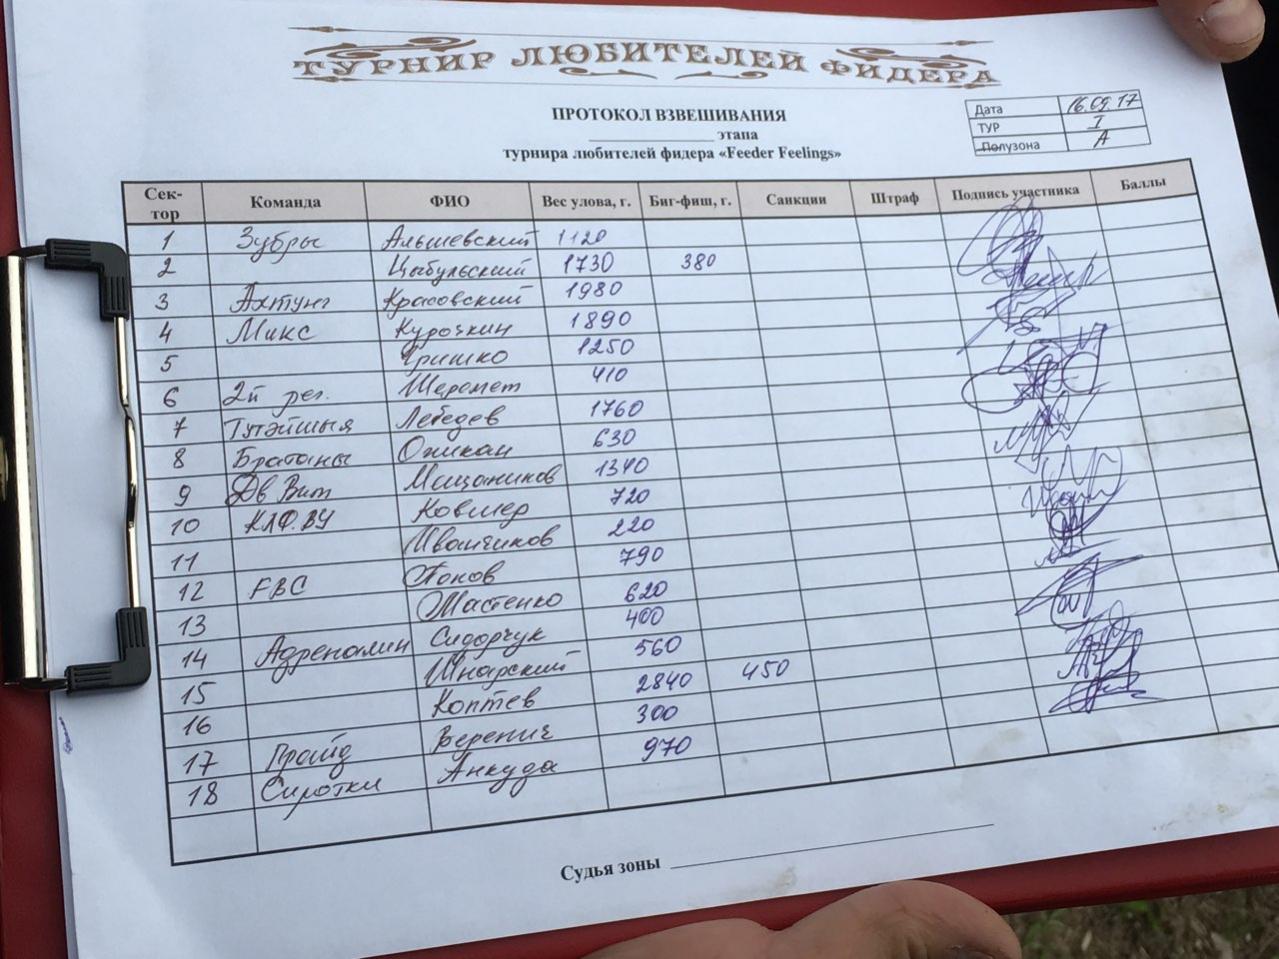 ТУРНИР ЛЮБИТЕЛЕЙ ФИДЕРА
ПРОТОКОЛ ВЗВЕШИВАНИЯ
____________ этапа
турнира любителей фидера «Feeder Feelings»
Дата 16.09.17
ТУР I
Полузона А
Сек-тор Команда ФИО Вес улова, г. Биг-фиш, г. Санкции Штраф Подпись участника Баллы
1 Зубры Альшевский 1120
2 Цыбульский 1730 380
3 Ахтунг Красовский 1980
4 Микс Курочкин 1890
5 Гришко 1250
6 2й рег. Шеремет 410
7 Тутэйшыя Лебедев 1760
8 Братаны Оникан 630
9 Дв Вит Мищаников 1340
10 КЛФ.ВУ Ковшер 720
11 Иванчиков 220
12 FBC Попов 790
13 Мастенко 620
14 Адреналин Сидорчук 400
15 Шнарский 560
16 Коптев 2840 450
17 Прайд Веренич 300
18 Сиротки Анкуда 970
Судья зоны ____________